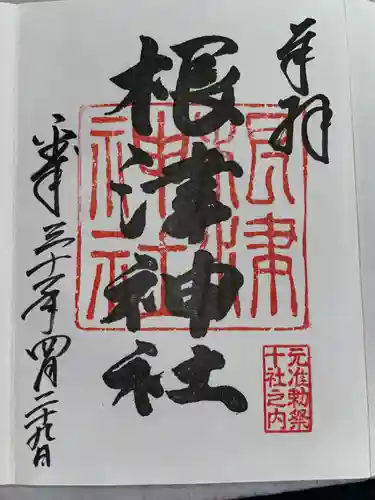 奉拝
根津神社
根津
神社
元准勅祭
十社之内
平成三十一年四月二十九日